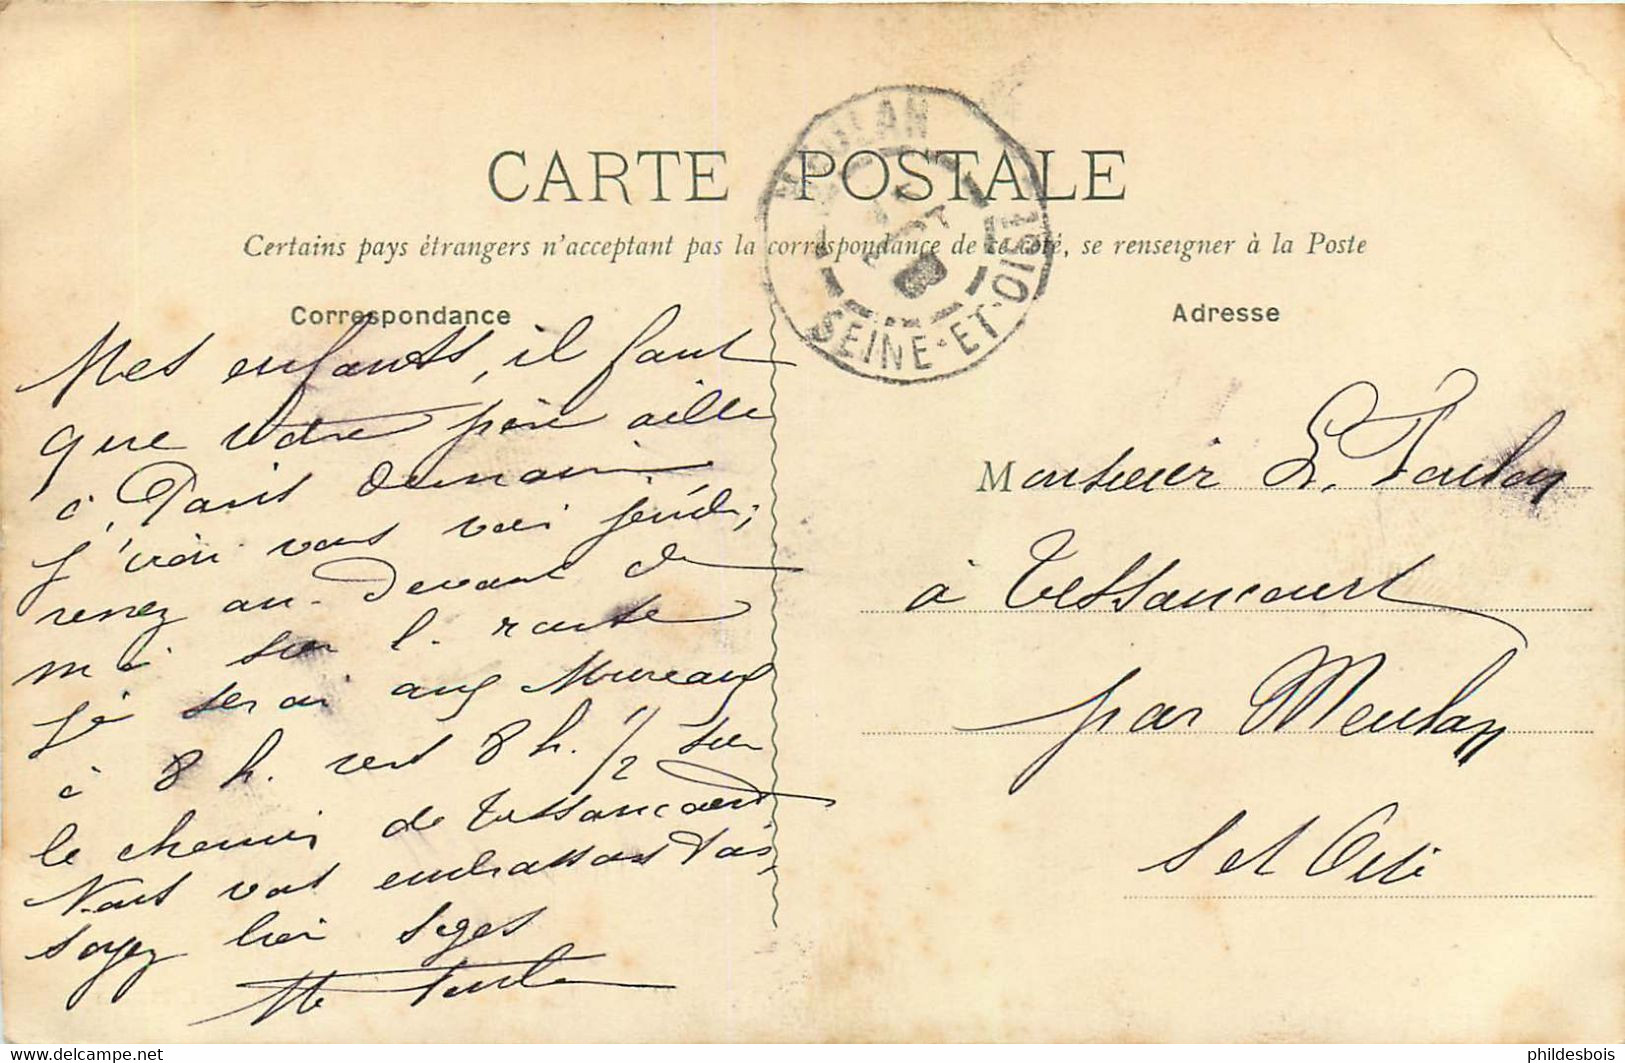 CARTE POSTALE
Certains pays étrangers n'acceptent pas la correspondance de ce côté, se renseigner à la Poste
Correspondance
Adresse
MEULAN
SEINE-ET-OISE
Mes enfants, il faut
que votre père aille
à Paris demain
j'irai vous voir jeudi;
venez au-devant de
moi sur la route
je serai aux Mureaux
à 8 h. vers 8 h. 1/2 sur
le chemin de Tessancourt
Nous vous embrassons tous,
soyez bien sages
Monsieur
à Tessancourt
par Meulan
S et Oise
phildesbois